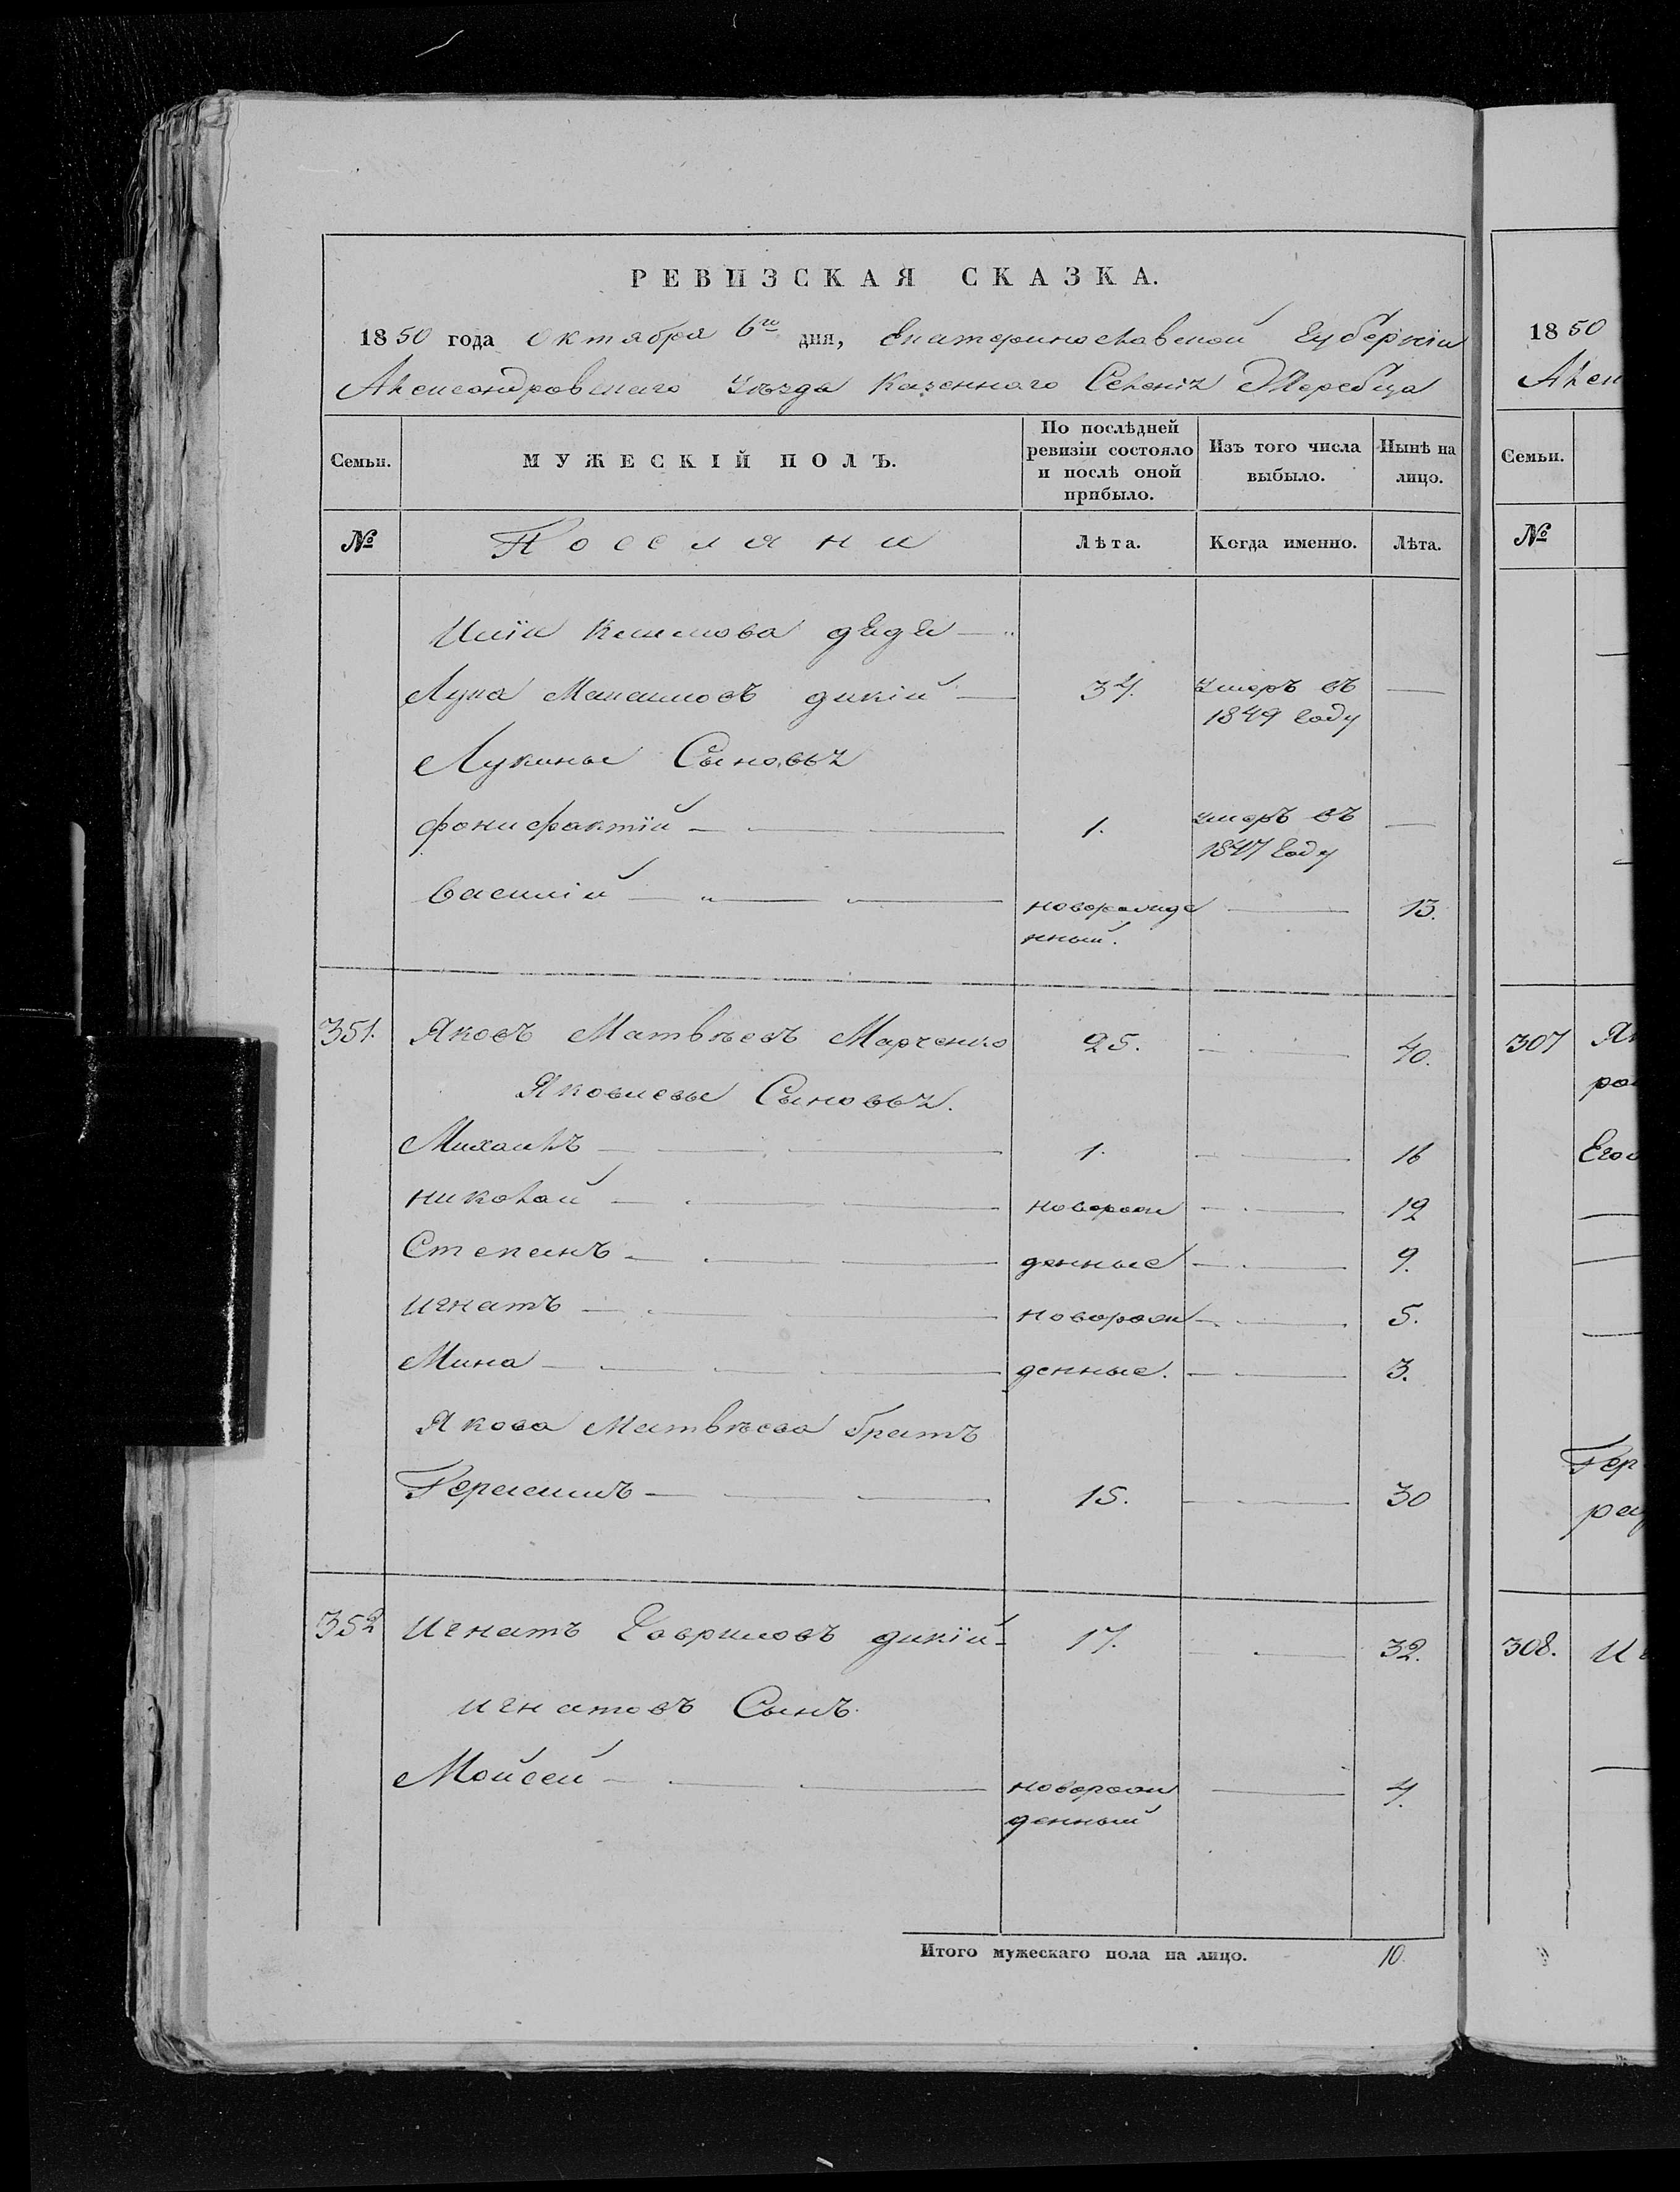 РЕВИЗСКАЯ СКАЗКА.
1850 года Октября 6го дня, Екатеринославской Губерніи
Александровскаго Уѣзда Казеннаго Селенія Жеребца
Семьи.
МУЖЕСКІЙ ПОЛЪ.
По послѣдней ревизіи состояло и послѣ оной прибыло.
Изъ того числа выбыло.
Нынѣ на лицо.
№
Поселяни
Лѣта.
Когда именно.
Лѣта.
Климова дядя
Лука Максимовъ дикій — 34. умеръ въ —
1849 году
Лукины Сыновья
фонифактій — 1. умеръ въ —
1847 году
Василій — новорожде — 13.
нный.
351. Яковъ Матвѣевъ Марченко 25. — 40.
Яковлевы Сыновья.
Михаилъ — 1. — 16
николай — новорож — 12
Степанъ — денные — 9.
игнатъ — новорож — 5.
Мина — денные. — 3.
Якова Матвѣева братъ
Герасимъ — 15. — 30
352 Игнатъ Гавриловъ дикій — 17. — 32.
игнатовъ Сынъ.
Мойсей — новорож — 4.
денный
Итого мужескаго пола на лицо. 10.
1850
Алек
Семьи.
№
307 Як
Его
Гер
308. И